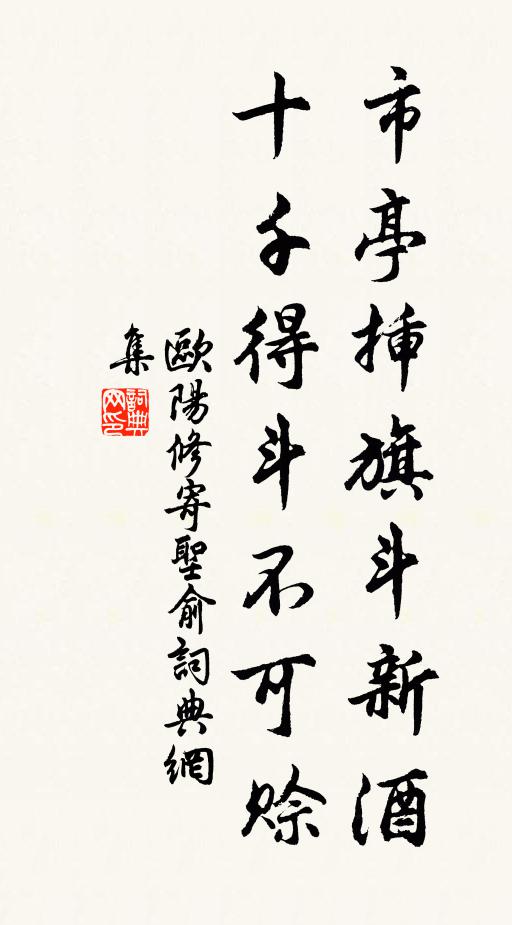 市亭插旗斗新酒
十千得斗不可賒
歐陽修寄聖俞詞典網
集
詞典
网印